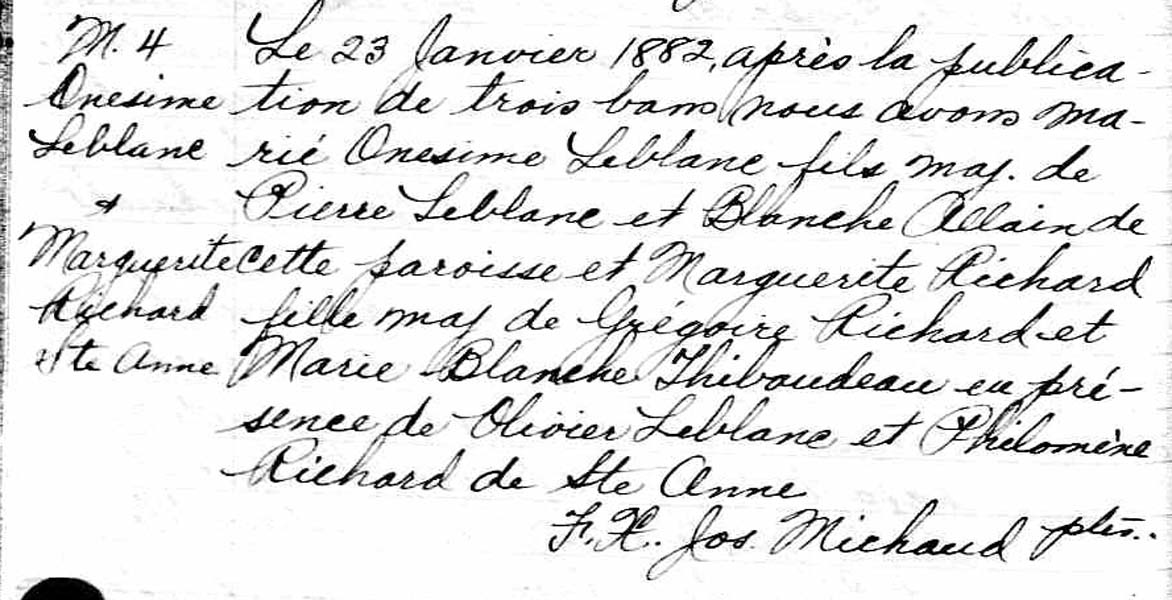 M. 4
Onesime
Leblanc
&
Marguerite
Richard
Ste Anne
Le 23 Janvier 1882, après la publica-
tion de trois bans, nous avons ma-
rié Onesime Leblanc fils maj. de
Pierre Leblanc et Blanche Allain de
cette paroisse et Marguerite Richard
fille maj de Grégoire Richard et
Marie Blanche Thibaudeau en pré-
sence de Olivier Leblanc et Philomène
Richard de Ste Anne
F. X. Jos. Michaud ptre..